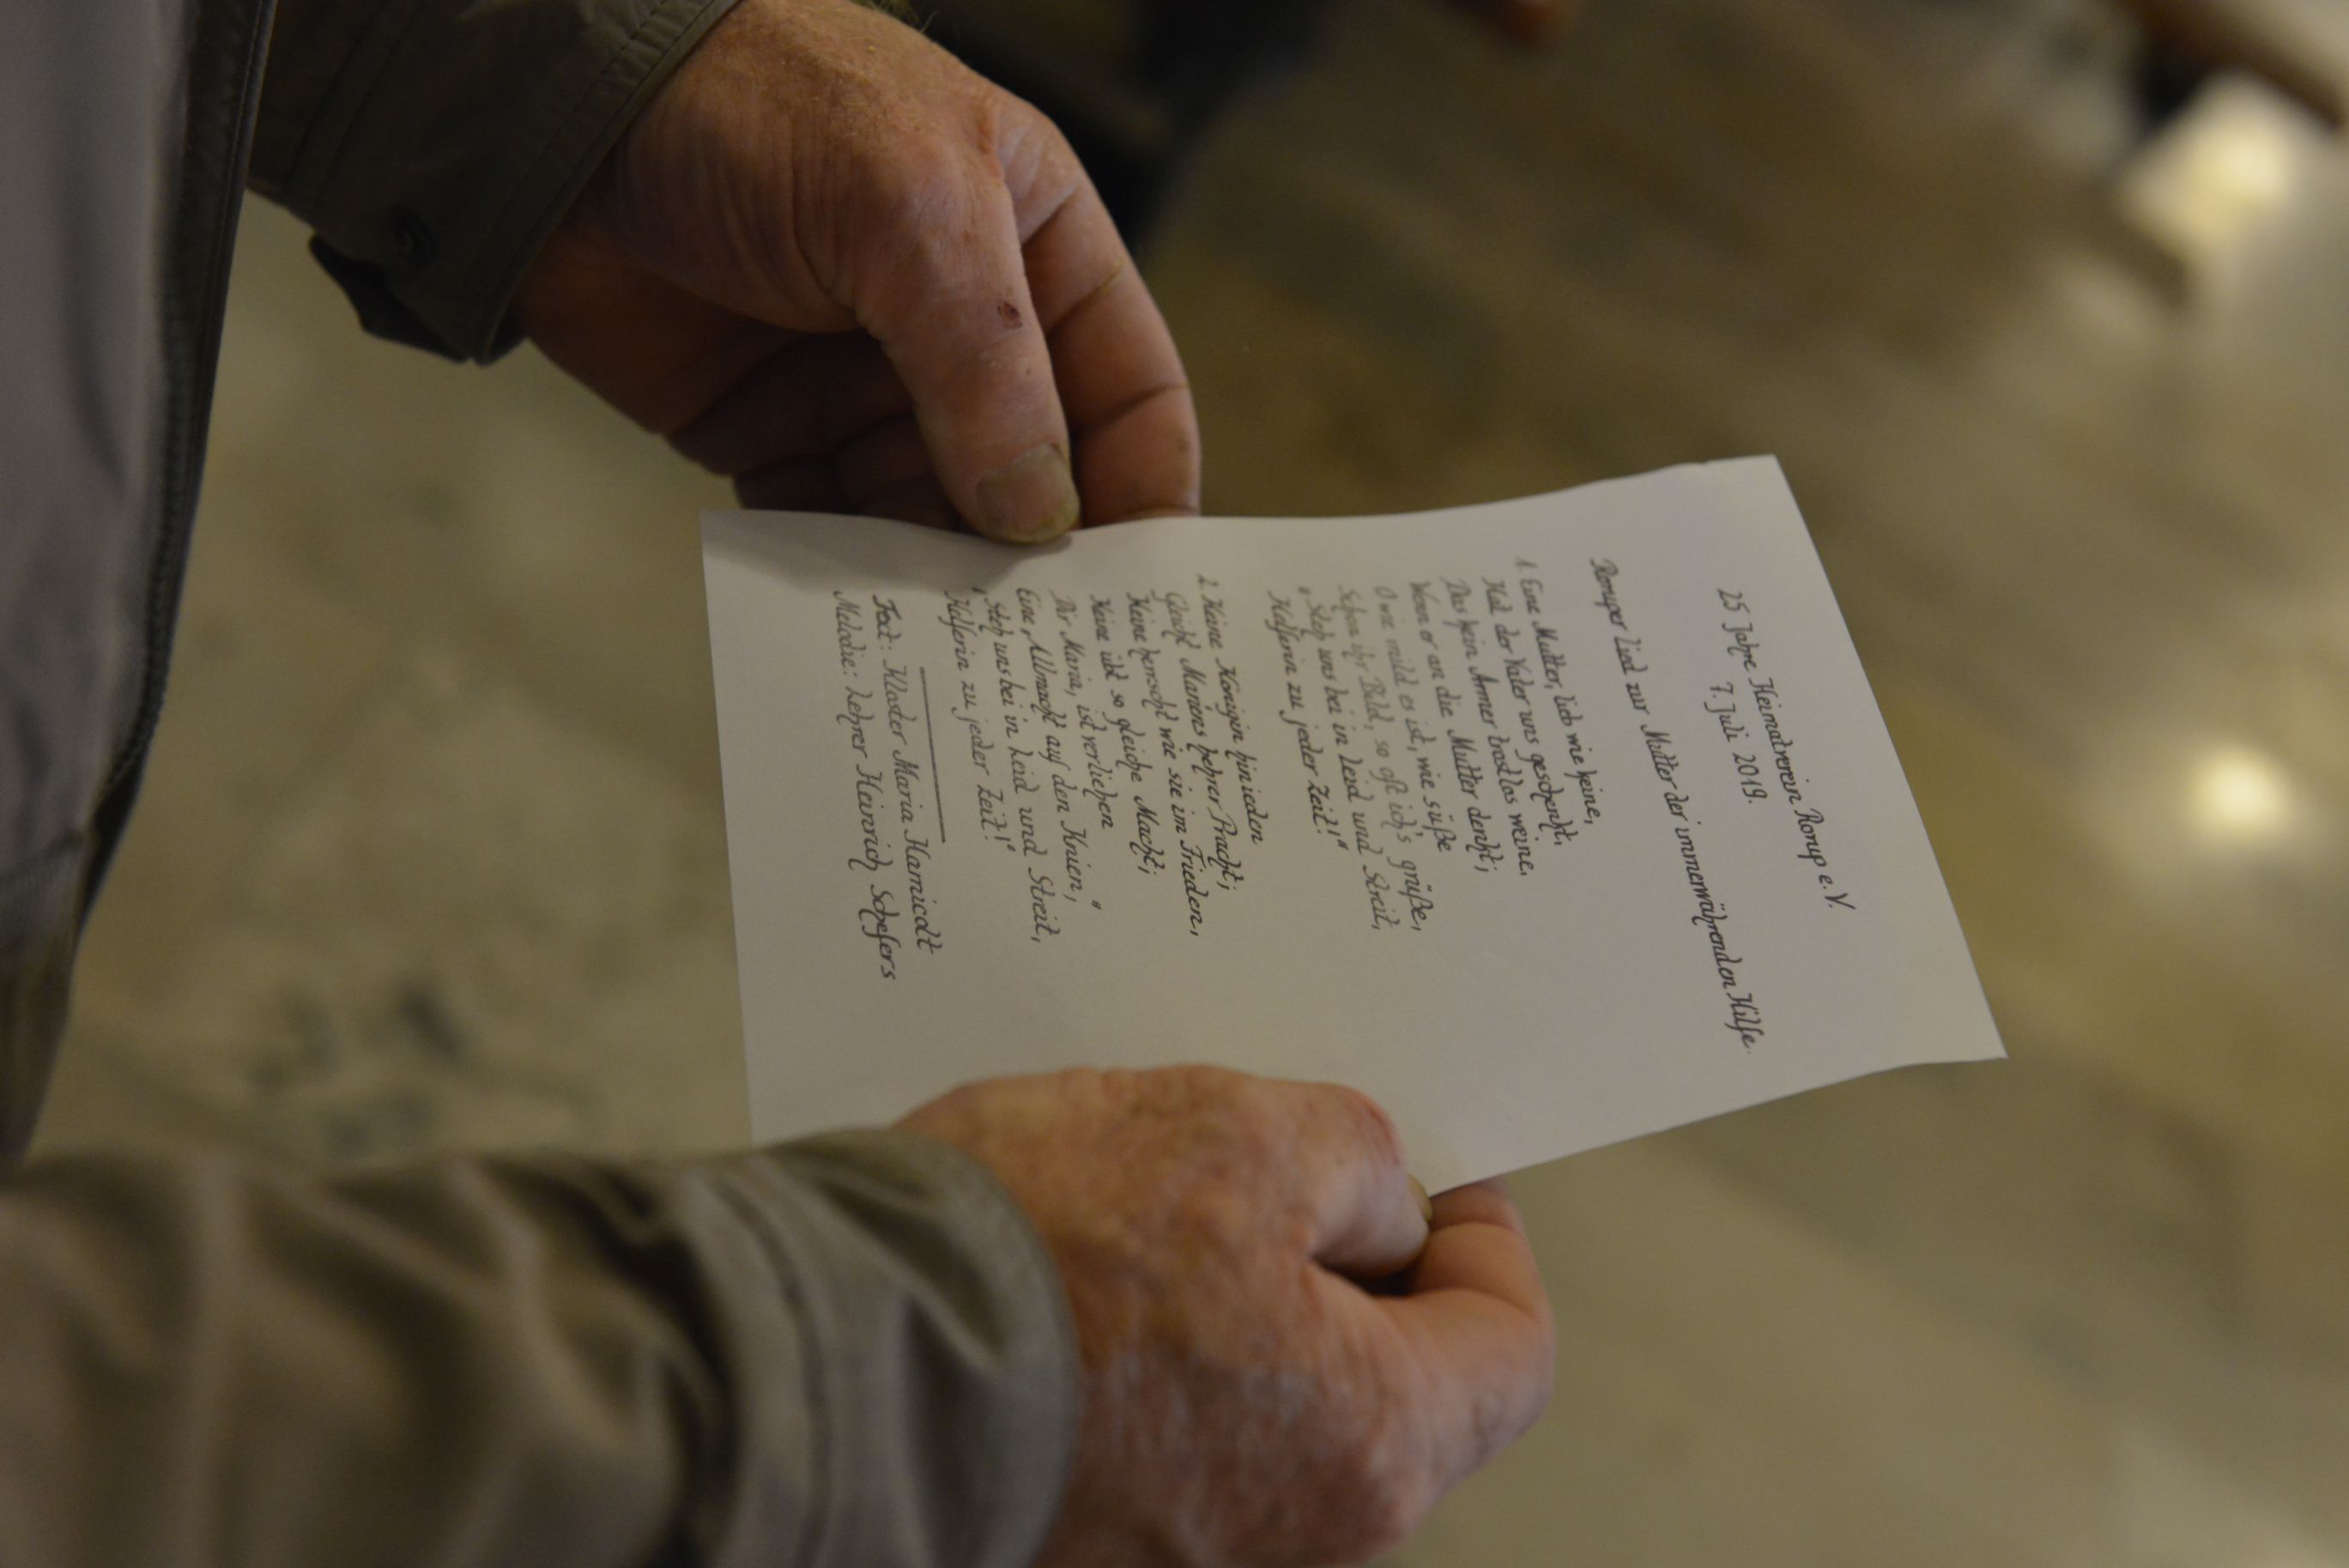 25 Jahre Heimatverein Rorup e.V.
7. Juli 2019.
Roruper Lied zur Mutter der immerwährenden Hilfe.
1. Eine Mutter, lieb wie keine,
Hat der Vater uns geschenkt,
Das kein Armer trostlos weine,
Wenn er an die Mutter denkt;
O wie mild es ist, wie süße
Schon ihr Bild, so oft ich's grüße,
„Steh uns bei in Leid und Streit,
Helferin zu jeder Zeit!"
2. Keine Königin hinieden
Gleicht Mariens hehrer Pracht;
Keine herrscht wie sie im Frieden,
Keine übt so gleiche Macht;
Dir Maria, ist verliehen
Eine „Allmacht auf den Knien,"
„Steh uns bei in Leid und Streit,
Helferin zu jeder Zeit!"
Text: Kloster Maria Hamicolt
Melodie: Lehrer Heinrich Schefers